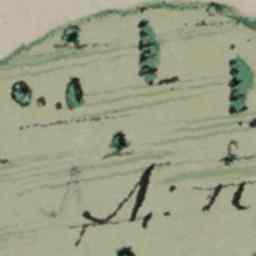 A: n